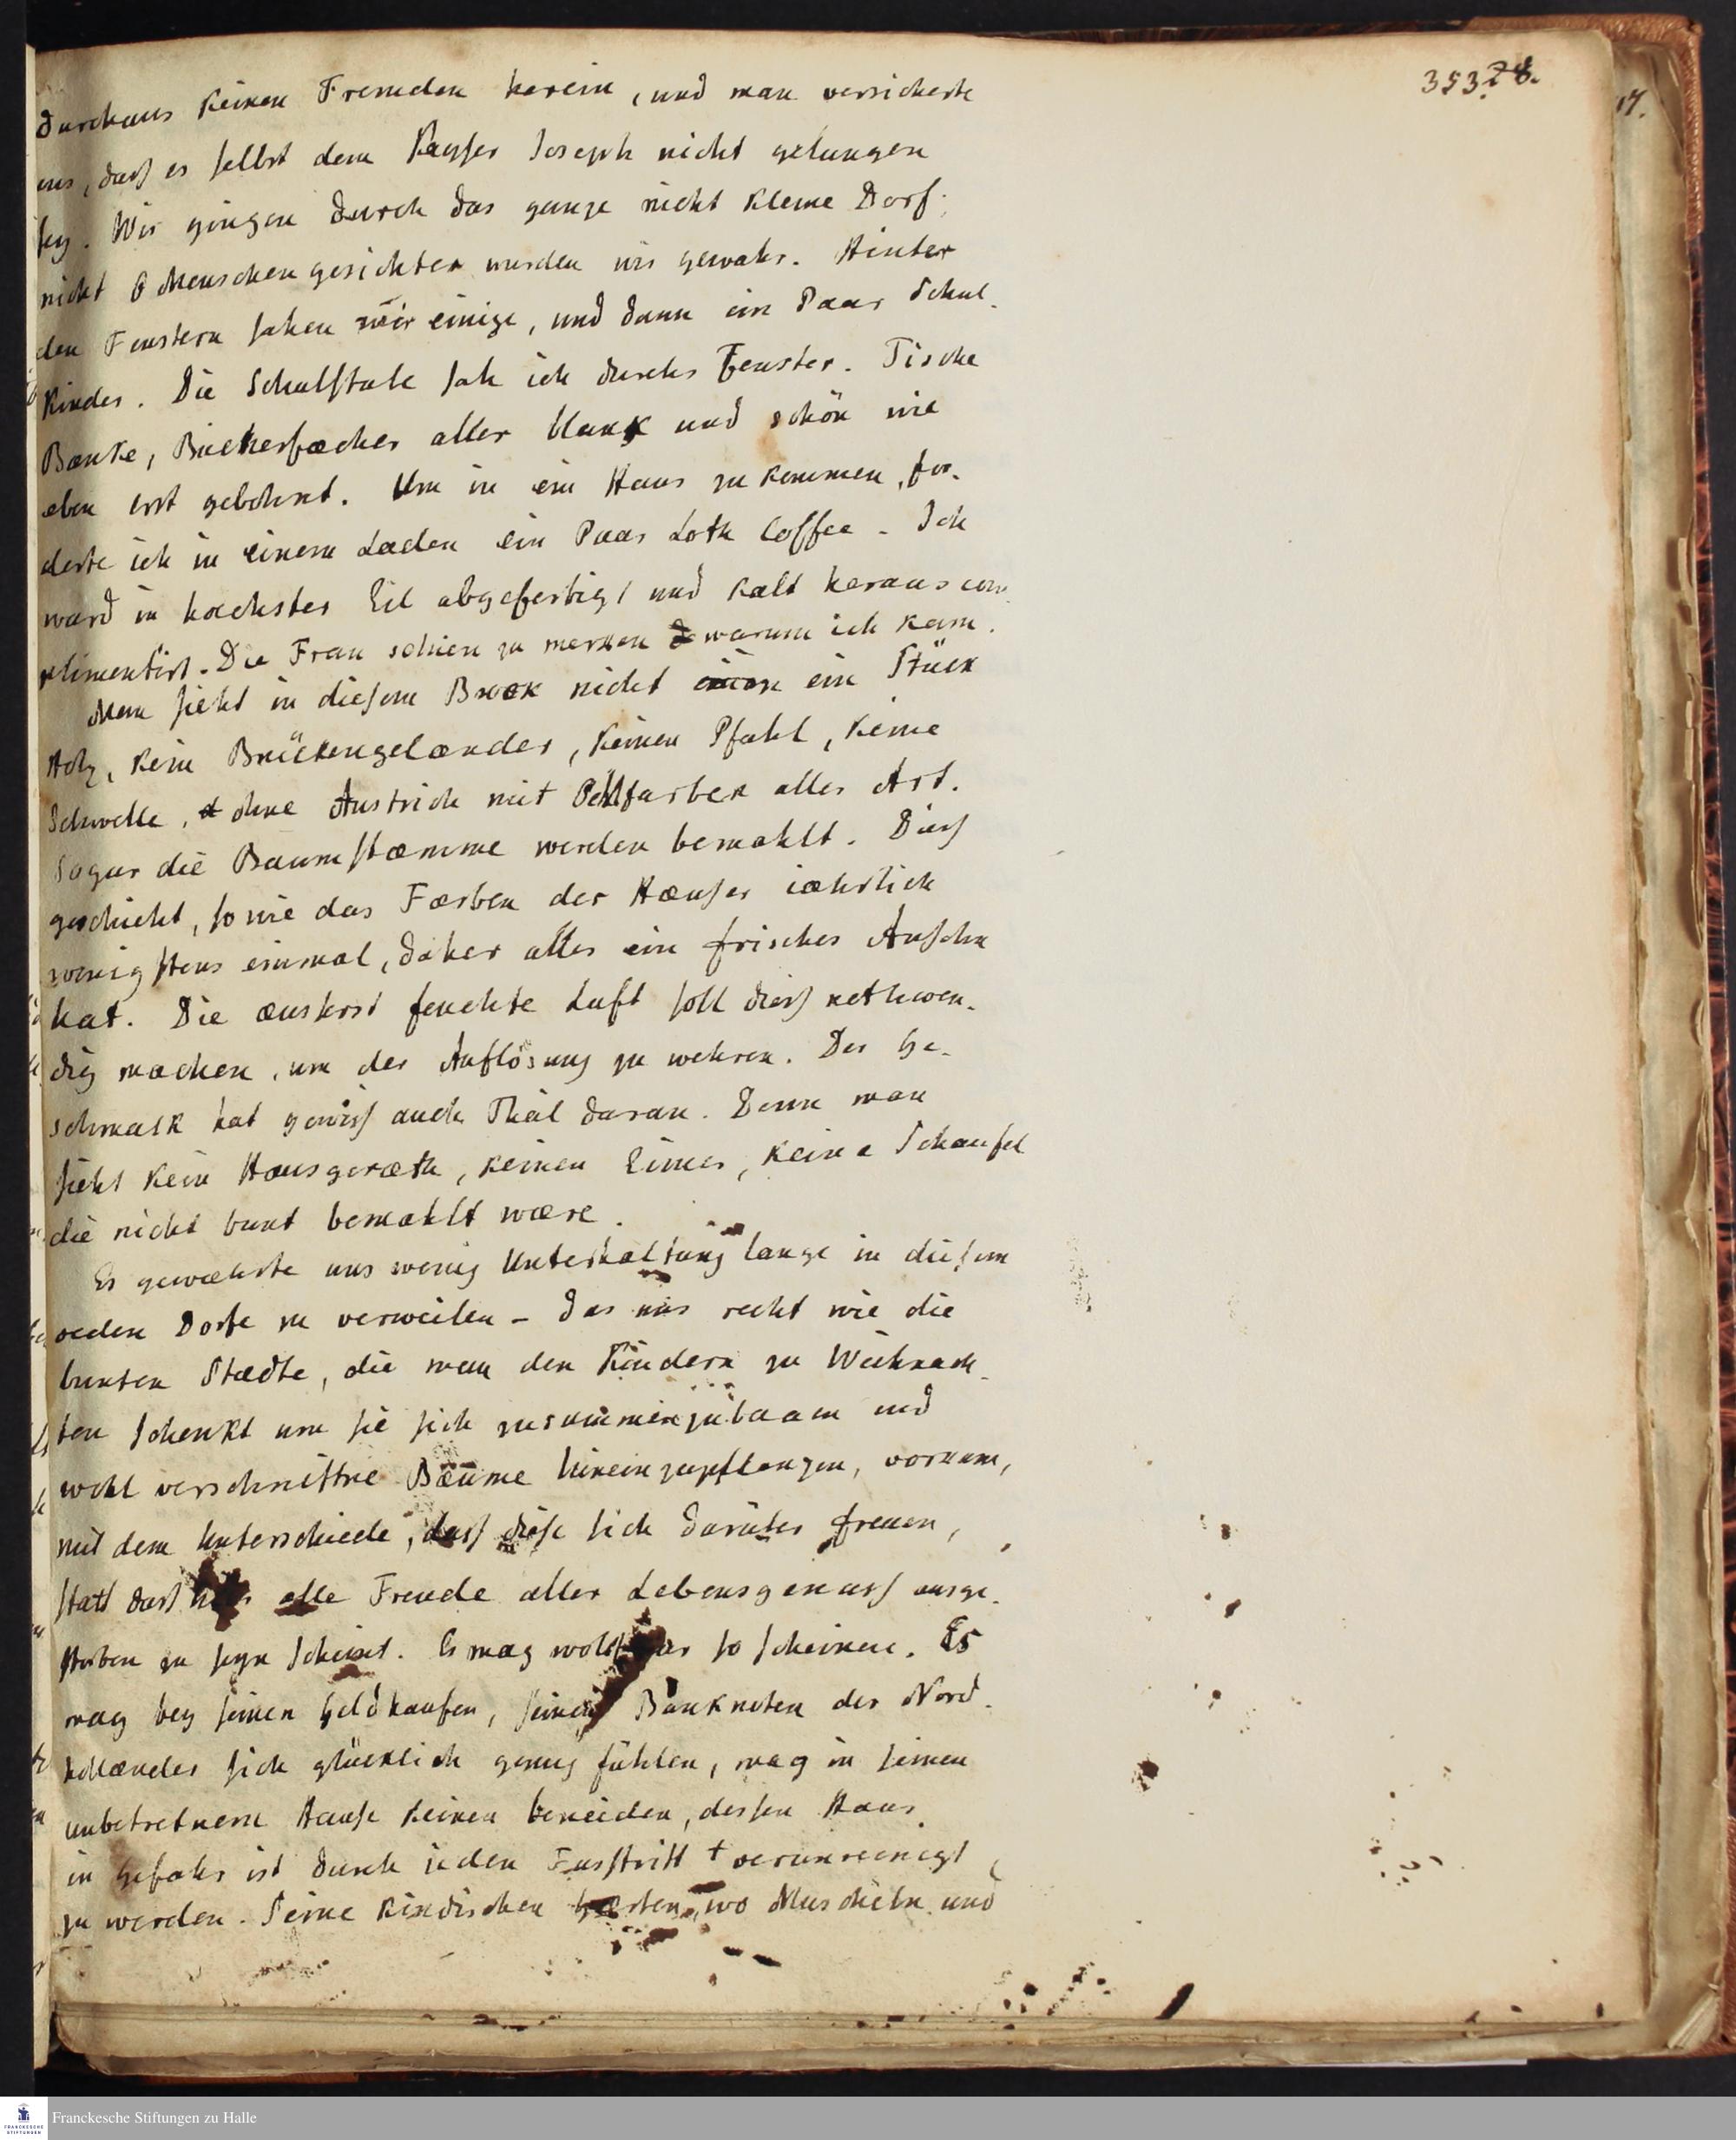 353. 28.
17.
durchaus keinen Fremden herein, und man versicherte
uns, daß es selbst dem Kayser Joseph nicht gelungen
sey. Wir gingen durch das ganze nicht kleine Dorf;
nicht 6 Menschengesichter wurden wir gewahr. Hinter
den Fenstern sahen wir einige, und dann ein Paar Schul-
kinder. Die Schulstube sah ich durchs Fenster. Tische
Bænke, Bücherfæcher alles blank und schön wie
eben erst gebohnt. Um in ein Haus zu kommen, for-
derte ich in einem Laden ein Paar Loth Coffee - Ich
ward in hœchster Eil abgefertigt und kalt heraus com-
plimentirt. Die Frau schien zu merken warum ich kam.
Man sieht in diesem Broek nicht ein Stück
Holz, kein Brückengelænder, keinen Pfahl, keine
Schwelle, ohne Anstrich mit Oelfarben aller Art.
Sogar die Baumstæmme werden bemahlt. Dieß
geschieht, so wie das Færben der Hæuser iæhrlich
wenigstens einmal, daher alles ein frisches Ansehn
hat. Die æuserst feuchte Luft soll dieß nothwen-
dig machen, um der Auflösung zu wehren. Der Ge-
schmack hat gewiß auch Theil daran. Denn man
sieht kein Hausgeræth, keinen Eimer, keine Schaufel
die nicht bunt bemahlt wære.
Es gewæhrte uns wenig Unterhaltung lange in diesem
oeden Dorfe zu verweilen - das uns recht wie die
bunten Stædte, die man den Kindern zu Weihnach-
ten schenkt um sie sich zusammenzubauen und
wohl verschnittne Bæume hineinzupflanzen, vorkam,
mit dem Unterschiede, daß diese sich darüber freuen,
statt daß hier alle Freude aller Lebensgenuß ausge-
storben zu seyn scheint. Es mag wohl nur so scheinen. Es
mag bey seinen Geldhaufen, seinen Banknoten der Nord-
hollænder sich glücklich genug fühlen, mag in seinem
unbetretnem Hause keinen beneiden, dessen Haus
in Gefahr ist durch ieden Fusstritt verunreinigt
zu werden. Seine kindischen Gærten, wo Muscheln und
Franckesche Stiftungen zu Halle
FRANCKESCHE
STIFTUNGEN